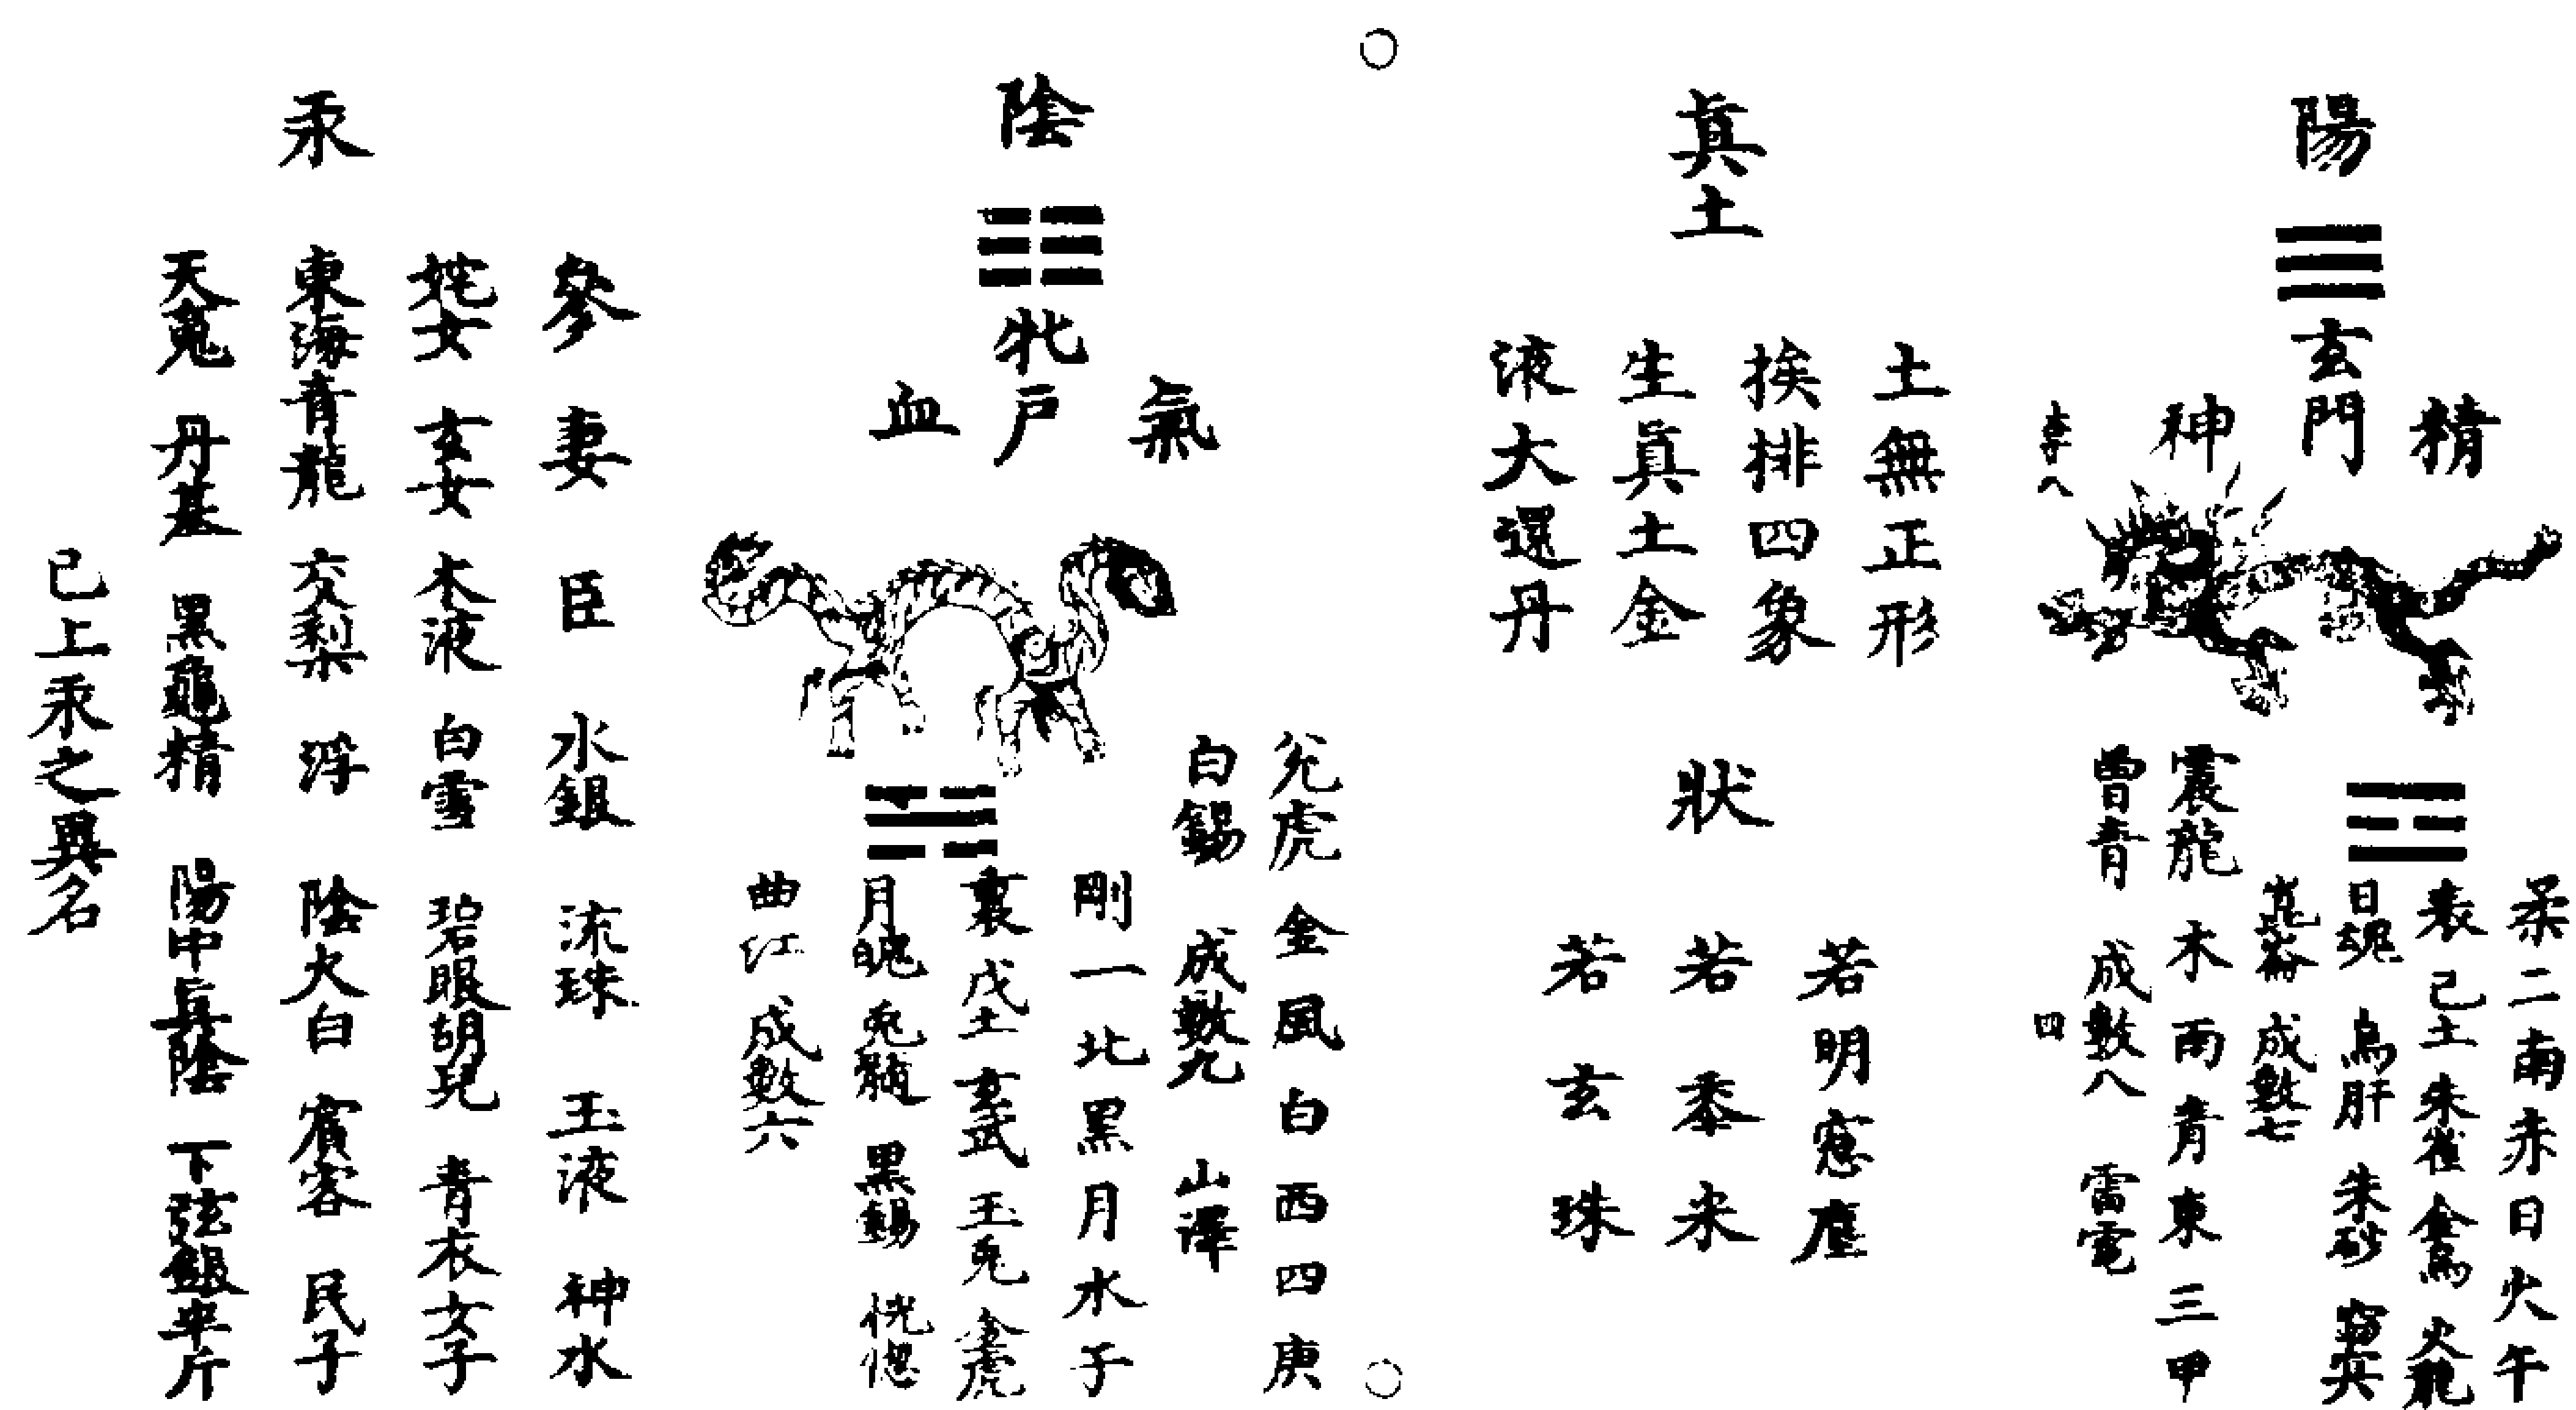 陽
玄門
精
神
李八
柔二南赤日火午
表己土朱雀金烏火龍
日魂 烏肝 朱砂
崑崙 成數七
震龍木雨青東三甲
曾青 成數八 雷電
四
眞土
土無正形
挨排四象
生眞土金
液大還丹
狀
若明窓塵
若黍米
若玄珠
陰
牝戶
氣
血
兊虎金風白西四庚
白錫 成數九 山澤
剛一北黑月水子
裏戊土玄武玉兎金虎
月魄 兎髓 黑錫 恍惚
曲江 成數六
汞
參 妻 臣 水銀 流珠 玉液 神水
姹女 玄女 木液 白雪 碧眼胡兒 青衣女子
東海青龍 交梨 浮 陰火白 賓客 民子
天魂 丹基 黑龜精 陽中眞陰 下弦銀半斤
已上汞之異名